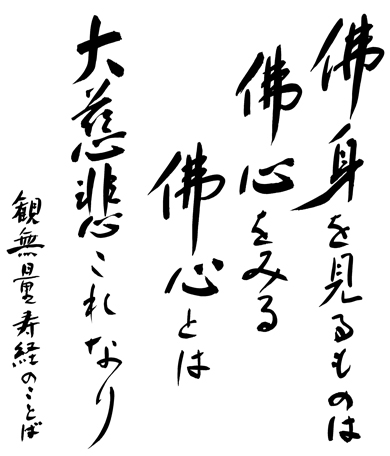 佛身を見るものは
佛心をみる
佛心とは
大慈悲これなり
観無量寿経のことば